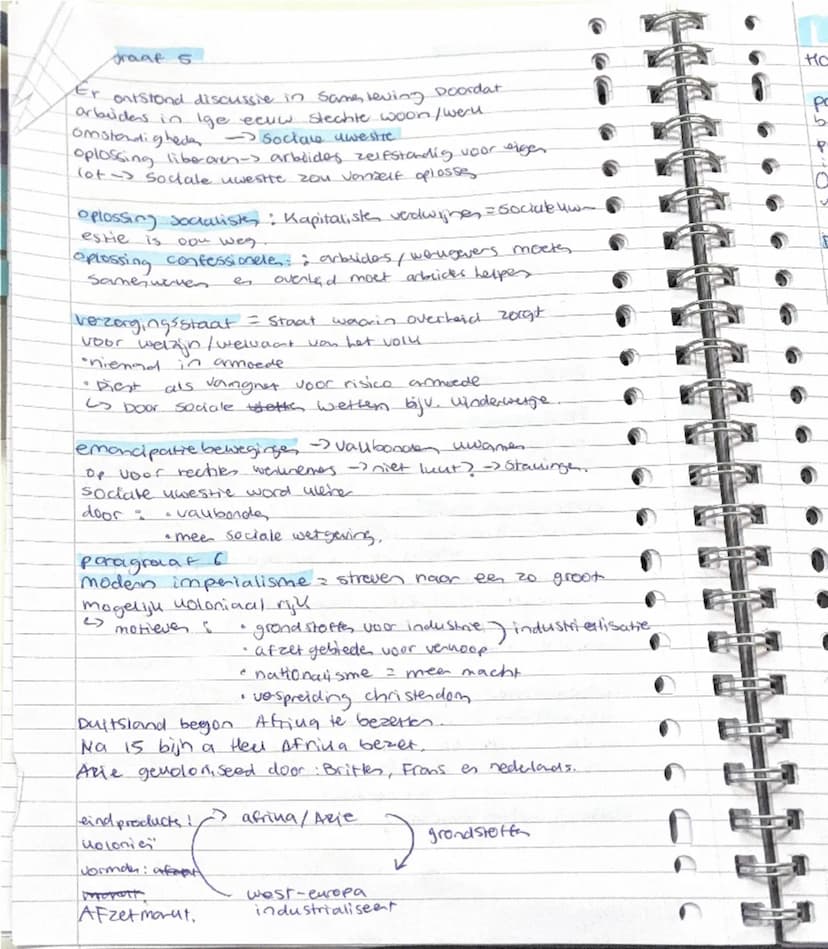 graaf 5
Er ontstond discussie in samenleving Doordat
arbeiders in 19e eeuw slechte woon/werk
omstandigheden → sociale kwestie
oplossing liberalen → arbeiders zelfstandig voor eigen
lot → sociale kwestie zou vanzelf oplossen
oplossing socialisten : Kapitalisten verdwijnen = sociale kw-
estie is ook weg.
oplossing confessionelen : arbeiders/werkgevers moeten
samenwerken en overheid moet arbeiders helpen
verzorgingsstaat = staat waarin overheid zorgt
voor welzijn/welvaart van het volk
• niemand in armoede
• Dient als vangnet voor risico armoede
↳ Door sociale wetten bijv. kinderwetje.
emancipatiebewegingen → vakbonden kwamen
op voor rechten werknemers → niet lukt? → stakingen.
sociale kwestie word kleiner
door : • vakbonden
• meer sociale wetgeving.
paragraaf 6
modern imperialisme = streven naar een zo groot
mogelijk koloniaal rijk
↳ motieven : • grondstoffen voor industrie ) industrialisatie
• afzetgebieden voor verkoop
• nationalisme = meer macht
• verspreiding christendom
Duitsland begon Afrika te bezetten.
Na 15 bijna heel Afrika bezet.
Azie gekoloniseerd door : Britten, Frans en nederlands.
eindproducten : → afrika/Azie
grondstoffen
koloniën
vormden :
west-europa
AFzetmarkt.
industrialiseert